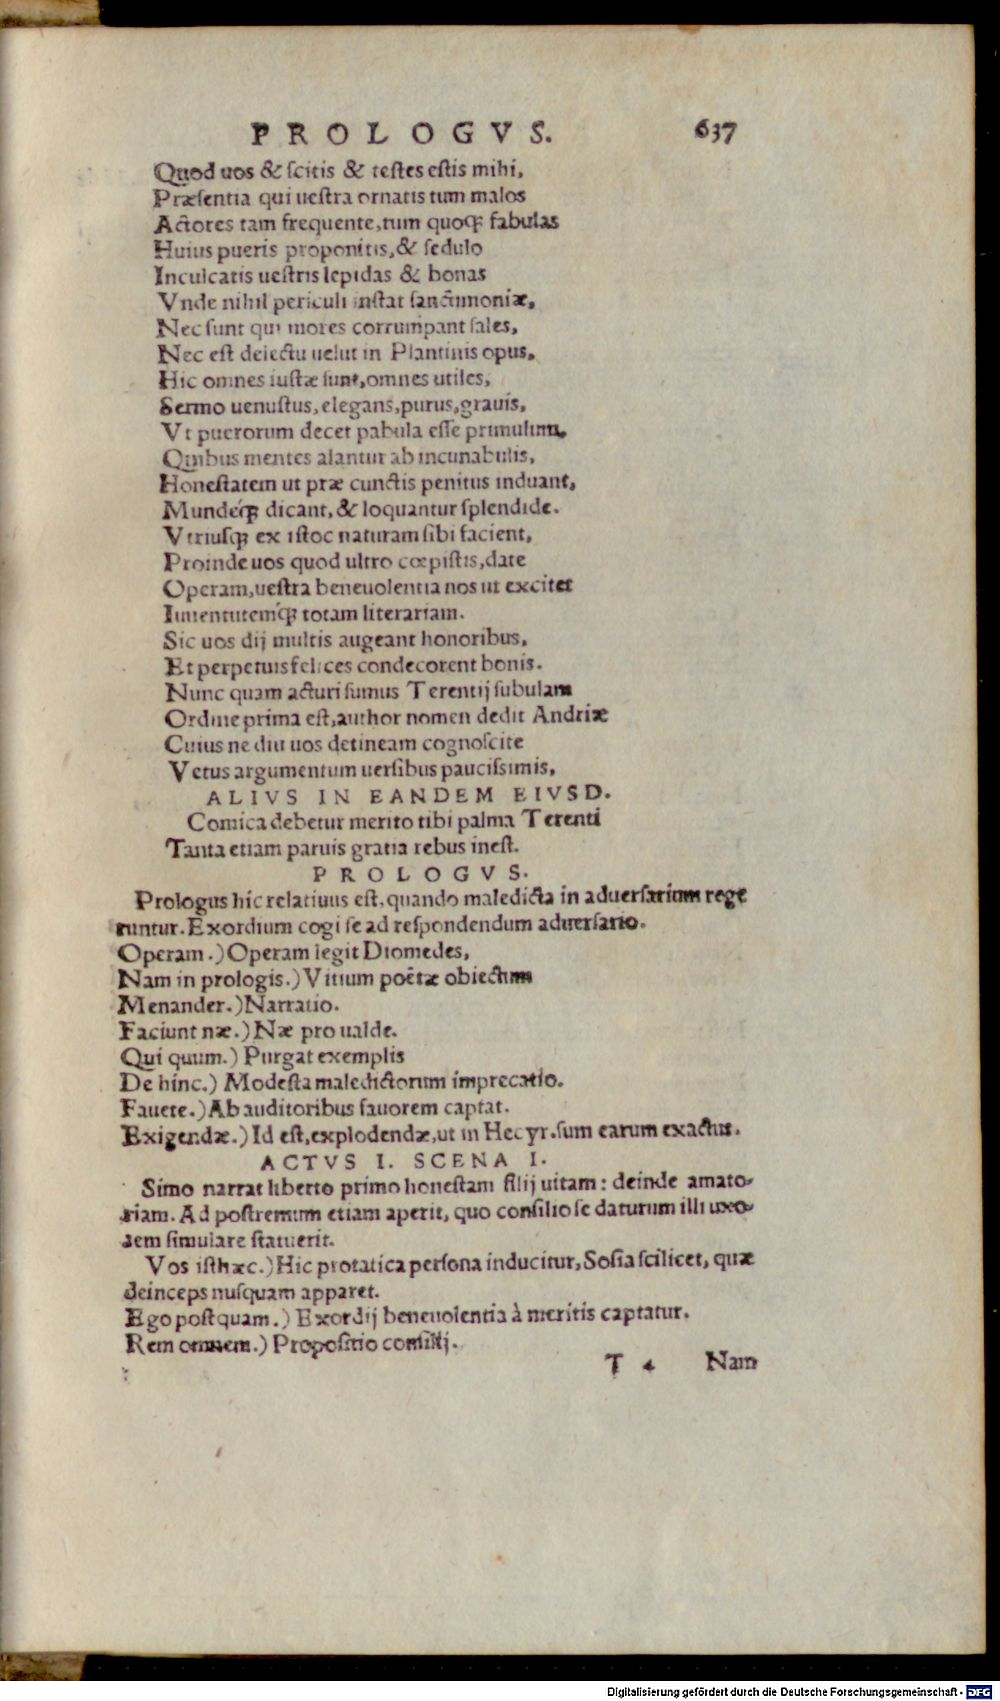 PROLOGVS. 637
Quod uos & scitis & testes estis mihi,
Præsentia qui uestra ornatis tum malos
Actores tam frequente, tum quoqꝫ fabulas
Huius pueris proponitis, & sedulo
Inculcatis uestris lepidas & bonas
Vnde nihil periculi instat sanctimoniæ,
Nec sunt qui mores corrumpant sales,
Nec est deiectu uelut in Plantinis opus,
Hic omnes iustæ sunt, omnes utiles,
Sermo uenustus, elegans, purus, grauis,
Vt puerorum decet pabula esse primulum,
Quibus mentes alantur ab incunabulis,
Honestatem ut præ cunctis penitus induant,
Mundeq́ꝫ dicant, & loquantur splendide.
Vtriusqꝫ ex istoc naturam sibi facient,
Proinde uos quod ultro cœpistis, date
Operam, uestra beneuolentia nos ut excitet
Iuuentutemq́ꝫ totam literariam.
Sic uos dij multis augeant honoribus,
Et perpetuis felices condecorent bonis.
Nunc quam acturi sumus Terentij subulam
Ordine prima est, author nomen dedit Andriæ
Cuius ne diu uos detineam cognoscite
Vetus argumentum uersibus paucissimis,
ALIVS IN EANDEM EIVSD.
Comica debetur merito tibi palma Terenti
Tanta etiam paruis gratia rebus inest.
PROLOGVS.
Prologus hic relatiuus est, quando maledicta in aduersarium rege
runtur. Exordium cogi se ad respondendum aduersario.
Operam.) Operam legit Diomedes,
Nam in prologis.) Vitium poëtæ obiectum
Menander.) Narratio.
Faciunt næ.) Næ pro ualde.
Qui quum.) Purgat exemplis
De hinc.) Modesta maledictorum imprecatio.
Fauete.) Ab auditoribus fauorem captat.
Exigendæ.) Id est, explodendæ, ut in Hecyr. sum earum exactus.
ACTVS I. SCENA I.
Simo narrat liberto primo honestam filij uitam: deinde amato-
riam. Ad postremum etiam aperit, quo consilio se daturum illi uxo-
rem simulare statuerit.
Vos isthæc.) Hic protatica persona inducitur, Sosia scilicet, quæ
deinceps nusquam apparet.
Ego postquam.) Exordij beneuolentia à meritis captatur.
Rem omnem.) Propositio consilij.
T 4 Nam
Digitalisierung gefördert durch die Deutsche Forschungsgemeinschaft - DFG